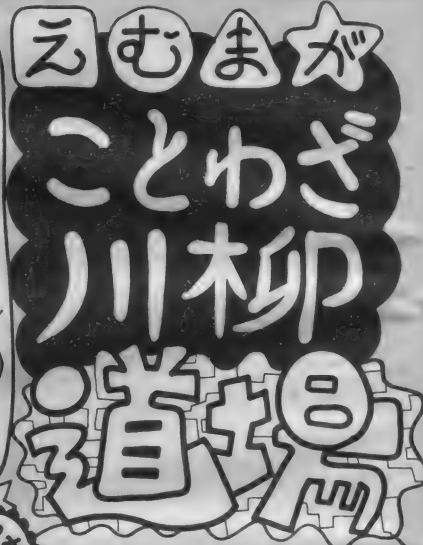 えむまが
ことわざ
川柳
道場